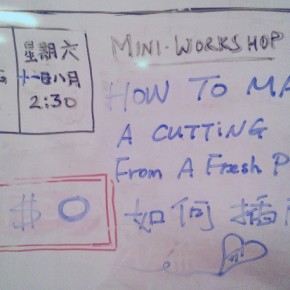 星期六
十一日八月
2:30
MINI-WORKSHOP
HOW TO MA
A CUTTING
From A Fresh P
$0
如何插